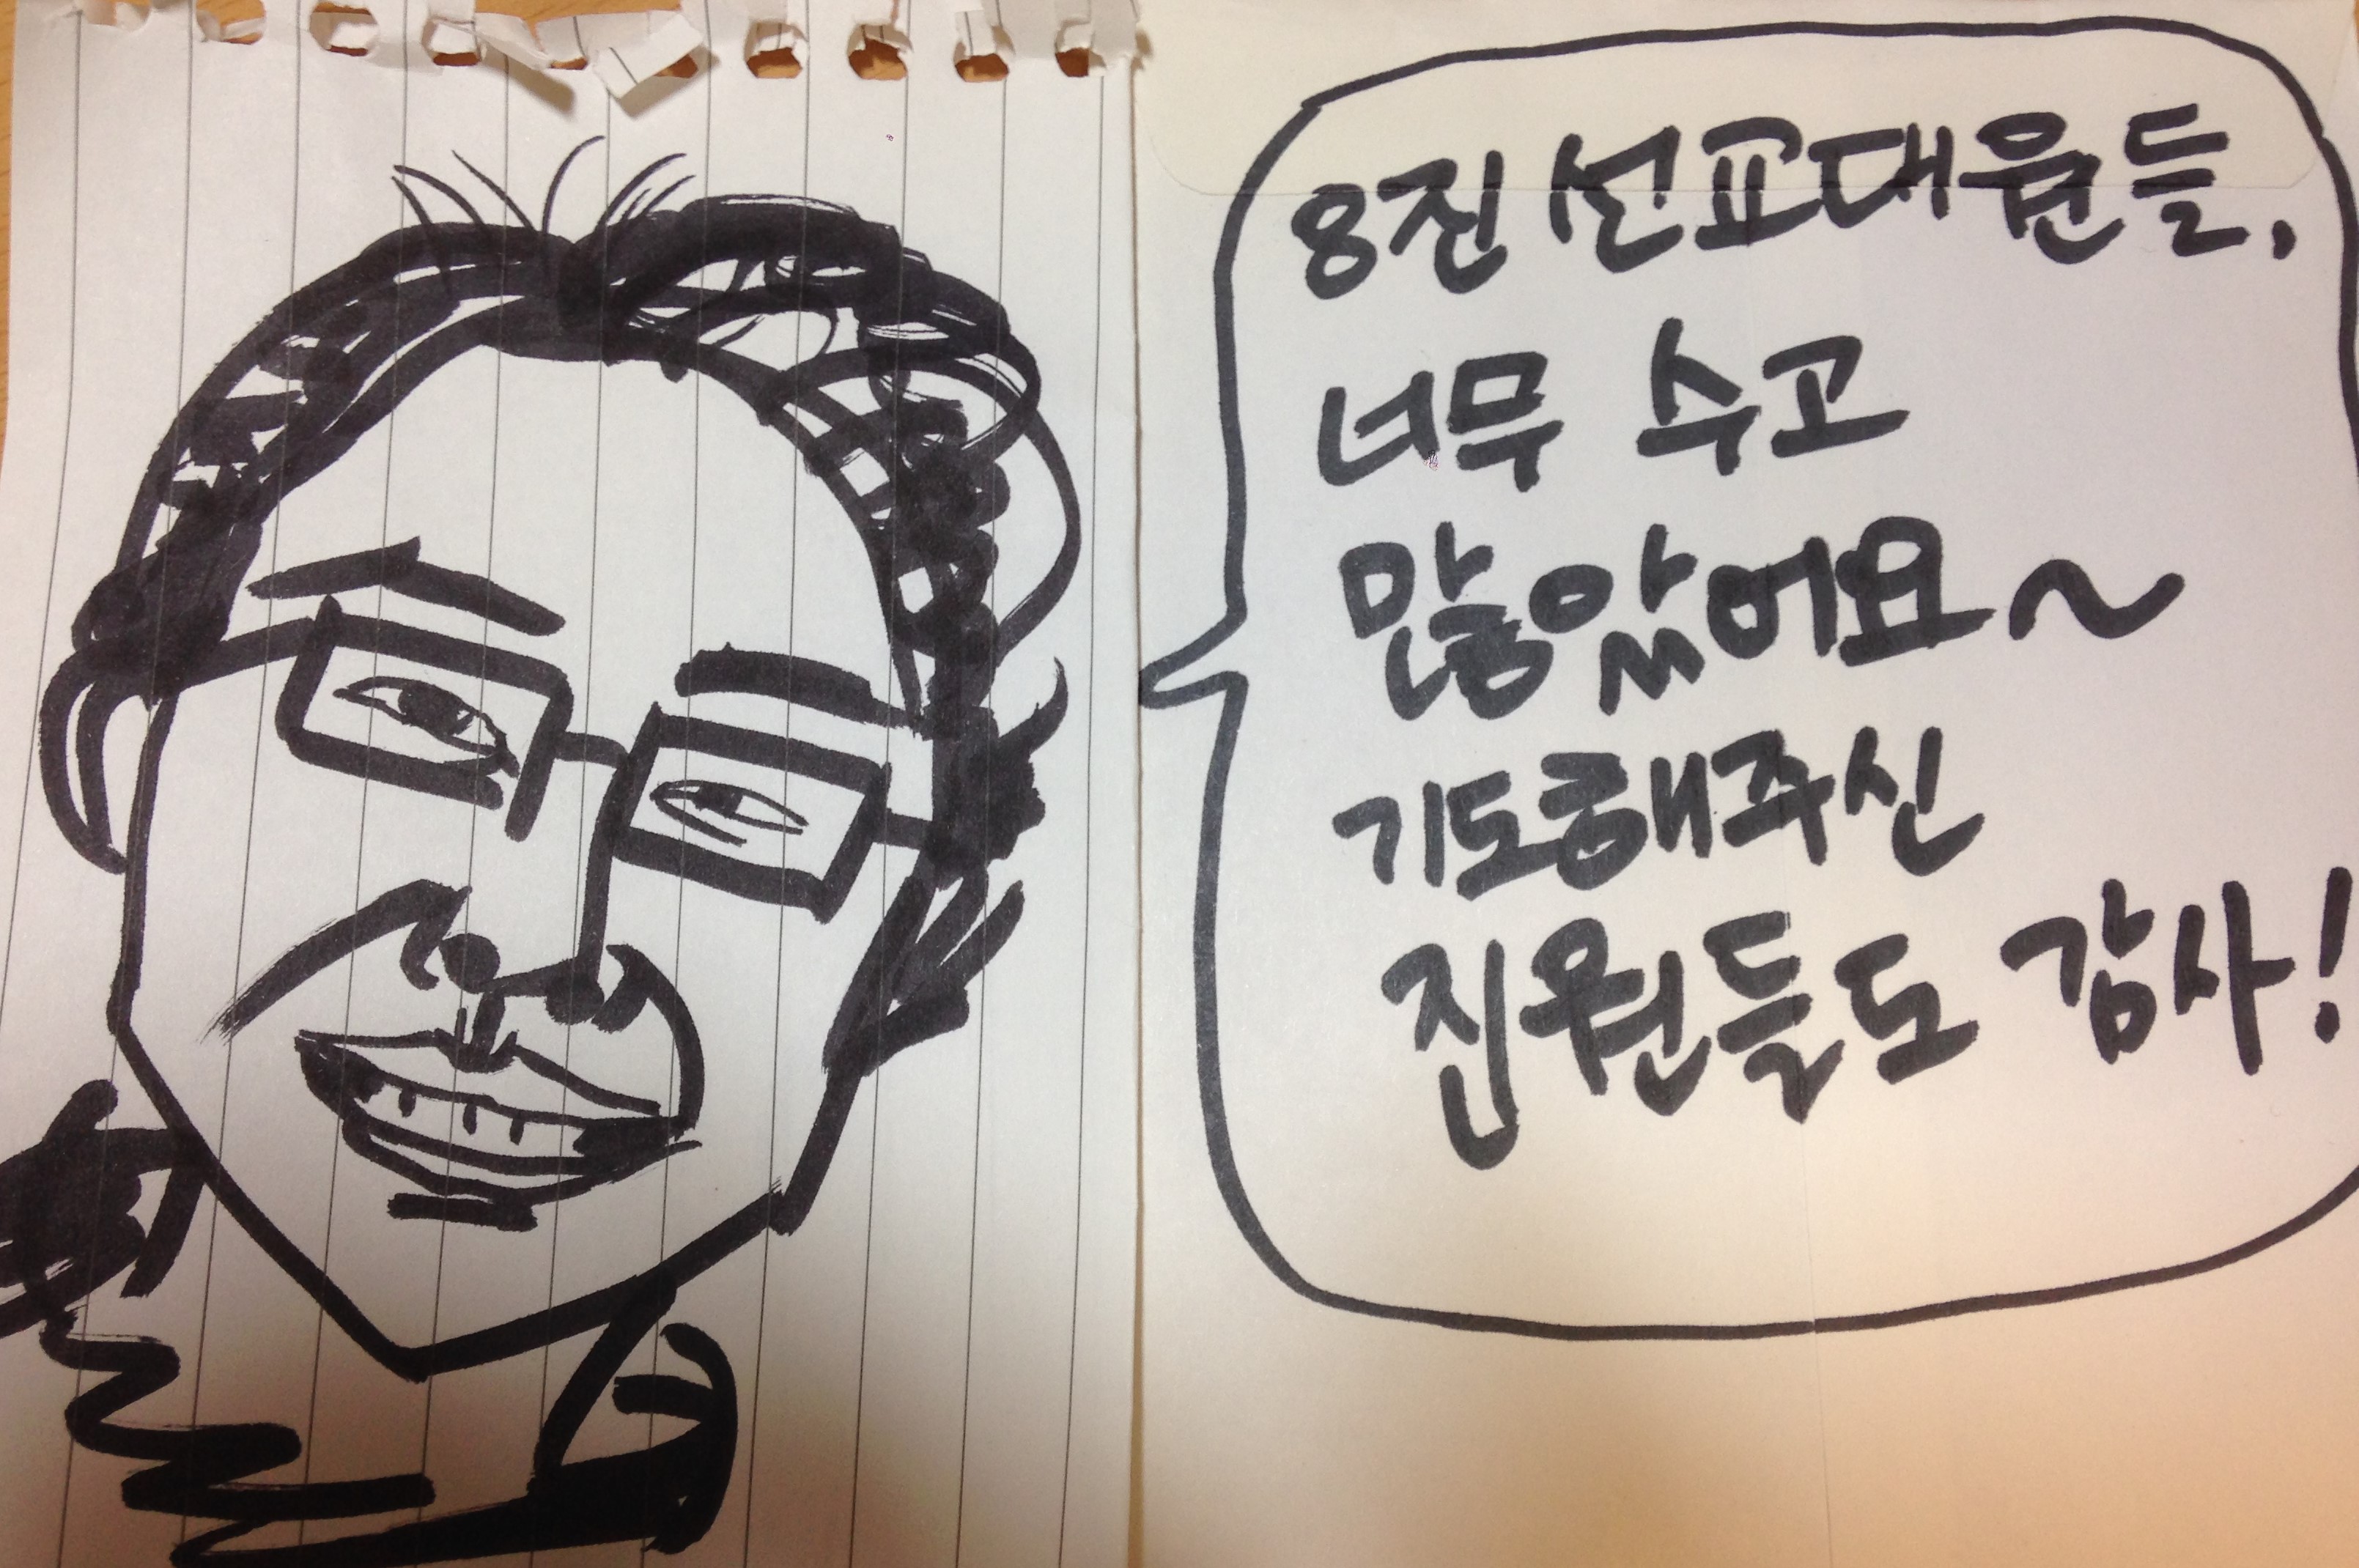 8진 선교대원들,
너무 수고
많았어요~
기도해주신
진원들도 감사!